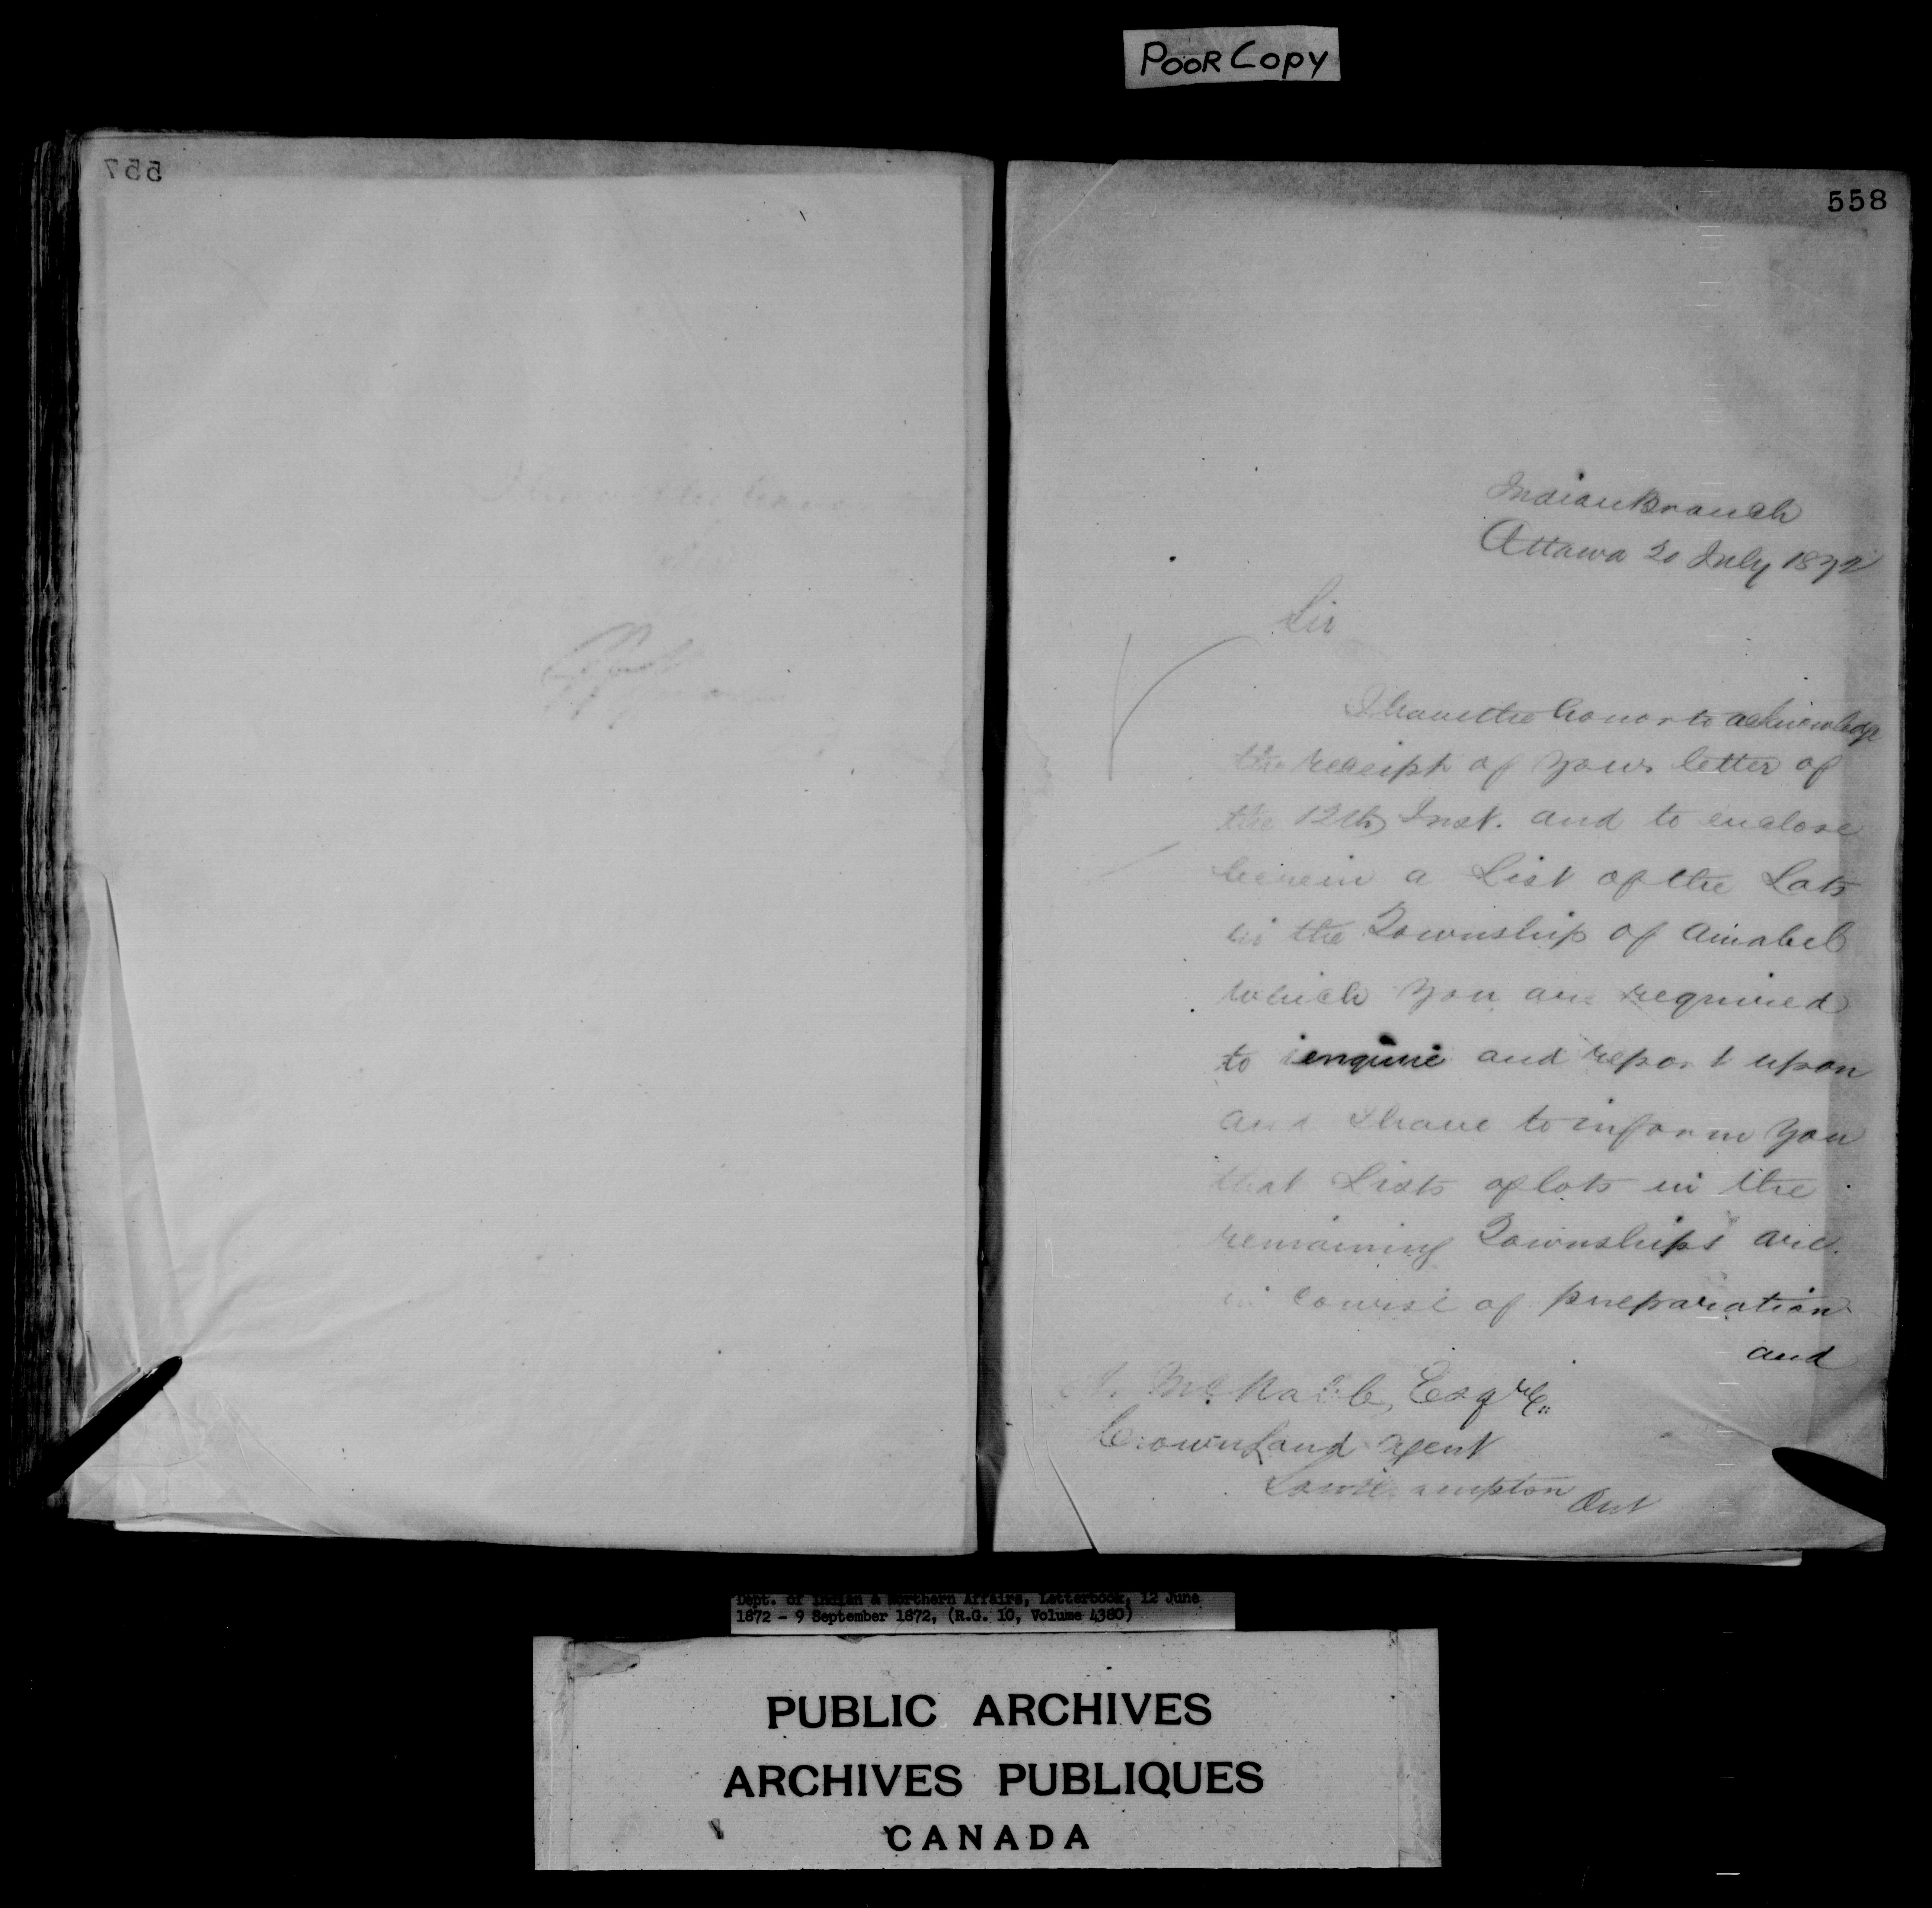 POOR COPY
557
558
Indian Branch
Ottawa 20 July 1872
Sir
I have the honor to acknowledge
the receipt of your letter of
the 12th Inst. and to enclose
herein a List of the Lots
in the Township of Amabel
which you are required
to enquire and report upon
and I have to inform you
that Lists of lots in the
remaining Townships are
in course of preparation
and
Esqre
Crown Land Agent
Southampton Ont
Dept. of Indian & Northern Affairs, Letterbook, 12 June
1872 - 9 September 1872, (R.G. 10, Volume 4380)
PUBLIC ARCHIVES
ARCHIVES PUBLIQUES
CANADA